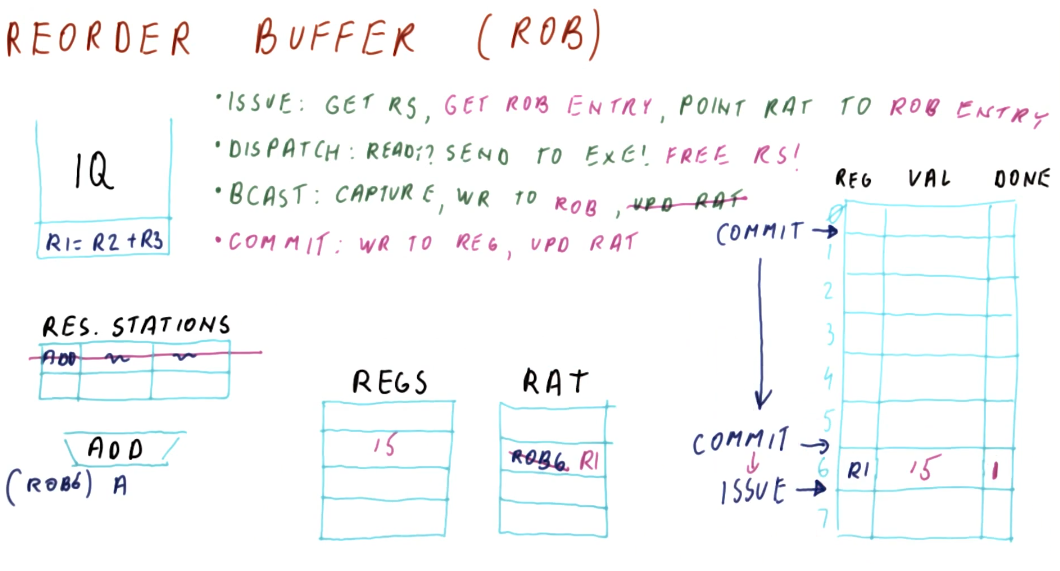 REORDER BUFFER (ROB)
•ISSUE: GET RS, GET ROB ENTRY, POINT RAT TO ROB ENTRY
•DISPATCH: READY? SEND TO EXE! FREE RS!
•BCAST: CAPTURE, WR TO ROB, UPD RAT
•COMMIT: WR TO REG, UPD RAT
IQ
R1= R2+R3
RES. STATIONS
ADD
ADD
(ROB6) A
REGS
15
RAT
ROB6 R1
REG VAL DONE
0
COMMIT →
1
2
3
4
5
COMMIT →
6 R1 15 1
ISSUE →
7